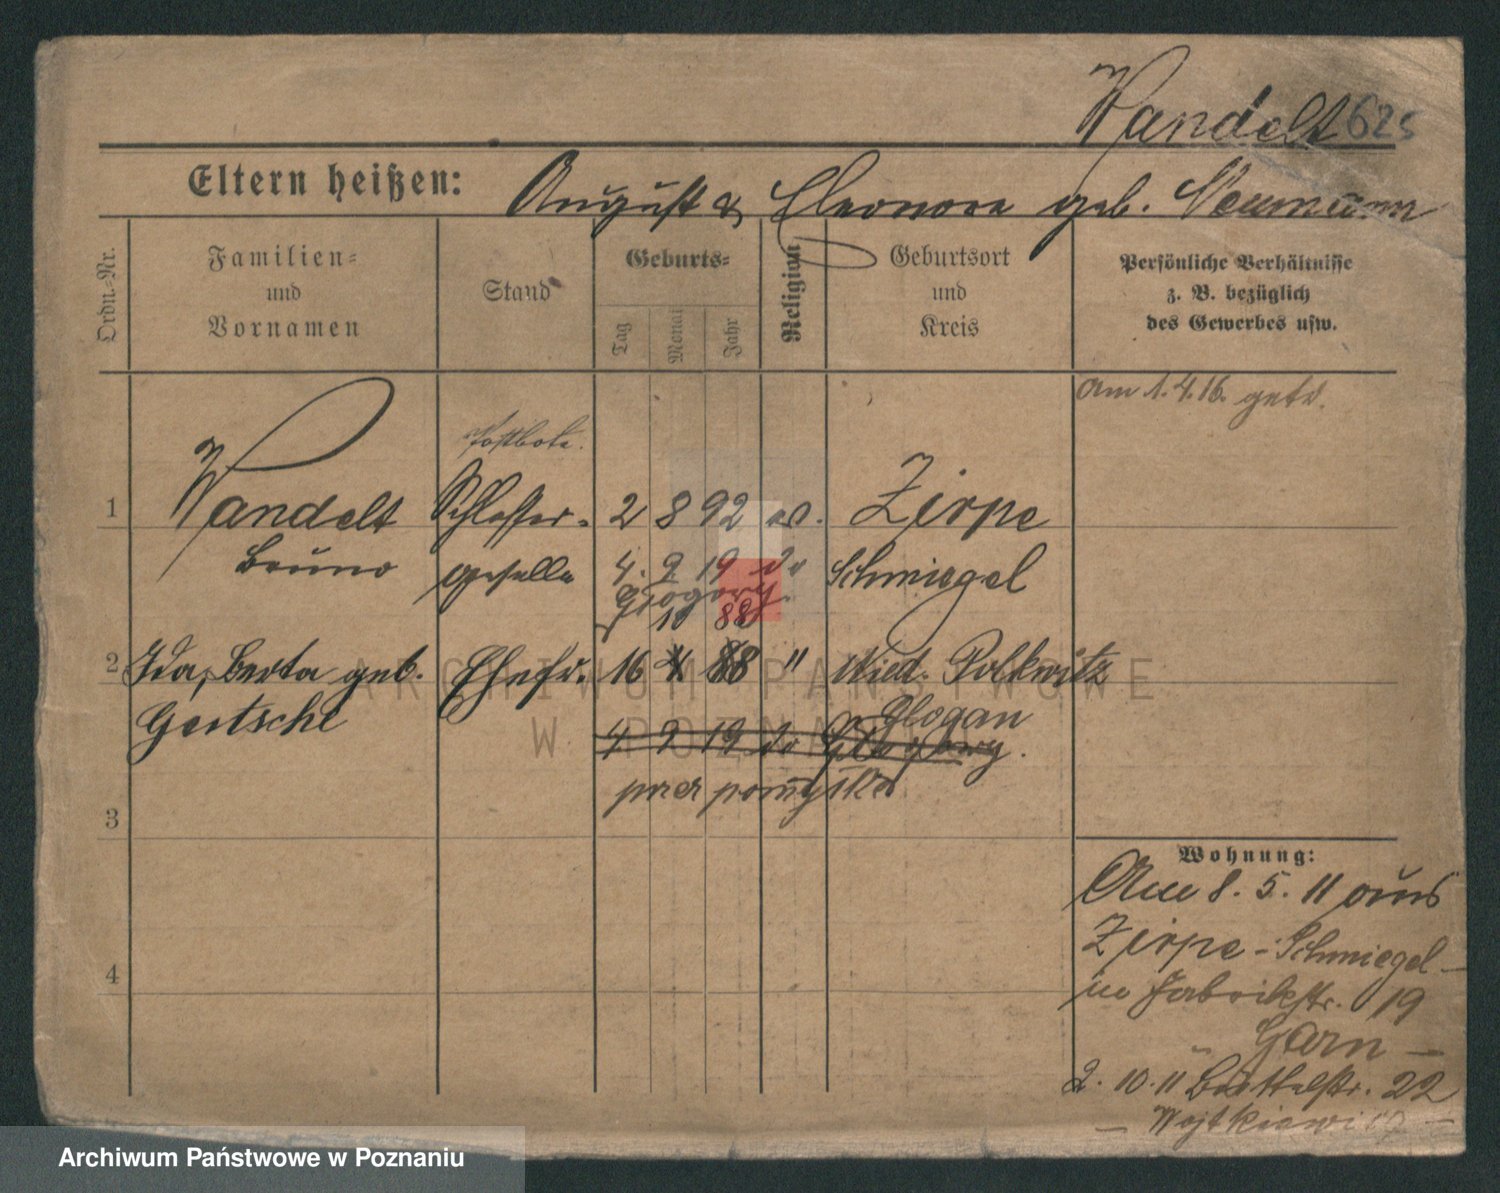 Wandelt 625
Eltern heißen: August & Eleonore geb. Neumann
Ordn.-Nr.
Familien- und Vornamen
Stand
Geburts-
Tag
Monat
Jahr
Religion
Geburtsort und Kreis
Persönliche Verhältnisse z. B. bezüglich des Gewerbes usw.
am 1.4.16. getr.
Postbote.
1 Wandelt Schlosser- 2 8 92 ev. Zirpe
Bruno geselle 4. 9 19 do Schmiegel
10 88
2 Ida, Berta geb. Ehefr. 16 88 " Nied. Polkwitz
Gertsche Glogau
4 9 19 do
przez pomyłkę
3
Wohnung:
Am 8. 5. 11 aus
Zirpe - Schmiegel -
in Fabrikstr. 19
Garn -
4
2. 10. 11 22
- Wojtkiewicz -
ARCHIWUM PAŃSTWOWE
W POZNANIU
Archiwum Państwowe w Poznaniu